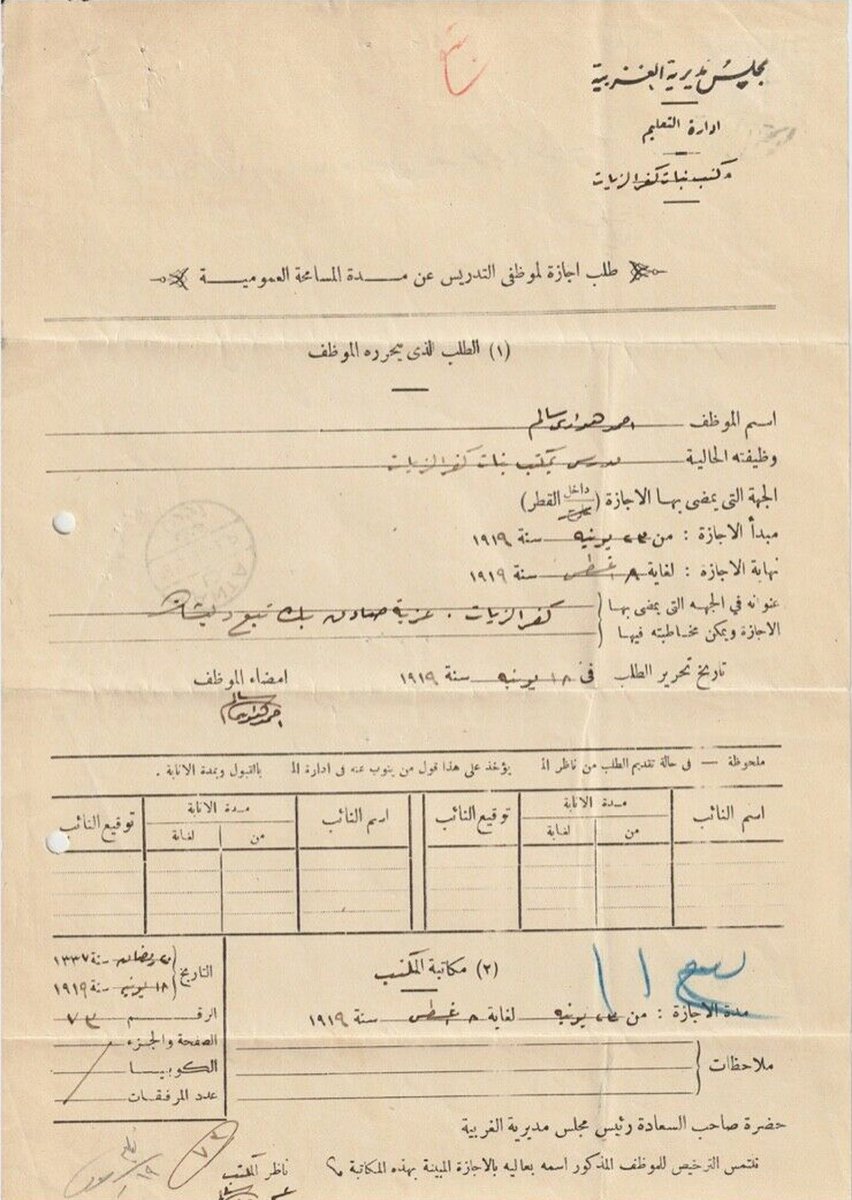 مجلس مديرية الغربية
ادارة التعليم
مكتب بنات كفر الزيات
طلب اجازة لموظفى التدريس عن مدة المسامحة العمومية
(١) الطلب الذى يحرره الموظف
اسم الموظف احمد هوارى سالم
وظيفته الحالية مدرس بمكتب بنات كفر الزيات
الجهة التى يمضى بها الاجازة (داخل القطر)
مبدأ الاجازة : من ٢٣ يونيه سنة ١٩١٩
نهاية الاجازة : لغاية ٨ اغسطس سنة ١٩١٩
عنوانه في الجهه التى يمضى بها
الاجازة ويمكن مخاطبته فيها
كفر الزيات . عزبة صادق بك تبع
تاريخ تحرير الطلب فى ١٨ يونيه سنة ١٩١٩
امضاء الموظف
احمد هوارى سالم
ملحوظة — فى حالة تقديم الطلب من ناظر الـ يؤخذ على هذا قول من ينوب عنه فى ادارة الـ بالقبول وبمدة الانابة .
اسم النائب مدة الانابة توقيع النائب اسم النائب مدة الانابة توقيع النائب
من لغاية من لغاية
(٢) مكاتبة المكتب
مدة الاجازة : من ٢٣ يونيه لغاية ٨ اغسطس سنة ١٩١٩
ملاحظات
التاريخ
٢٠ رمضان سنة ١٣٣٧
١٨ يونيه سنة ١٩١٩
الرقم ٧٣
الصفحة والجزء
الكوبيا
عدد المرفقات
حضرة صاحب السعادة رئيس مجلس مديرية الغربية
نلتمس الترخيص للموظف المذكور اسمه بعاليه بالاجازة المبينة بهذه المكاتبة
ناظر المكتب